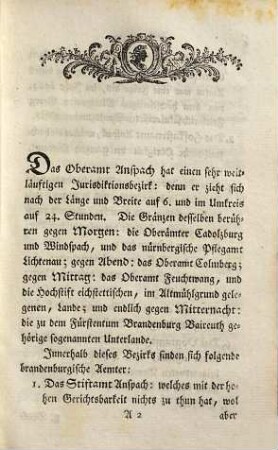 Das Oberamt Anspach hat einen sehr weit-
läuftigen Jurisdiktionsbezirk: denn er zieht sich
nach der Länge und Breite auf 6. und im Umkreis
auf 24. Stunden. Die Gränzen desselben berüh-
ren gegen Morgen: die Oberämter Cadolzburg
und Windspach, und das nürnbergische Pflegamt
Lichtenau; gegen Abend: das Oberamt Colmberg;
gegen Mittag: das Oberamt Feuchtwang, und
die Hochstift eichstettischen, im Altmühlgrund gele-
genen, Lande; und endlich gegen Mitternacht:
die zu dem Fürstentum Brandenburg Baireuth ge-
hörige sogenannten Unterlande.
Innerhalb dieses Bezirks finden sich folgende
brandenburgische Aemter:
1. Das Stiftamt Anspach: welches mit der ho-
hen Gerichtsbarkeit nichts zu thun hat, wol
A 2 aber